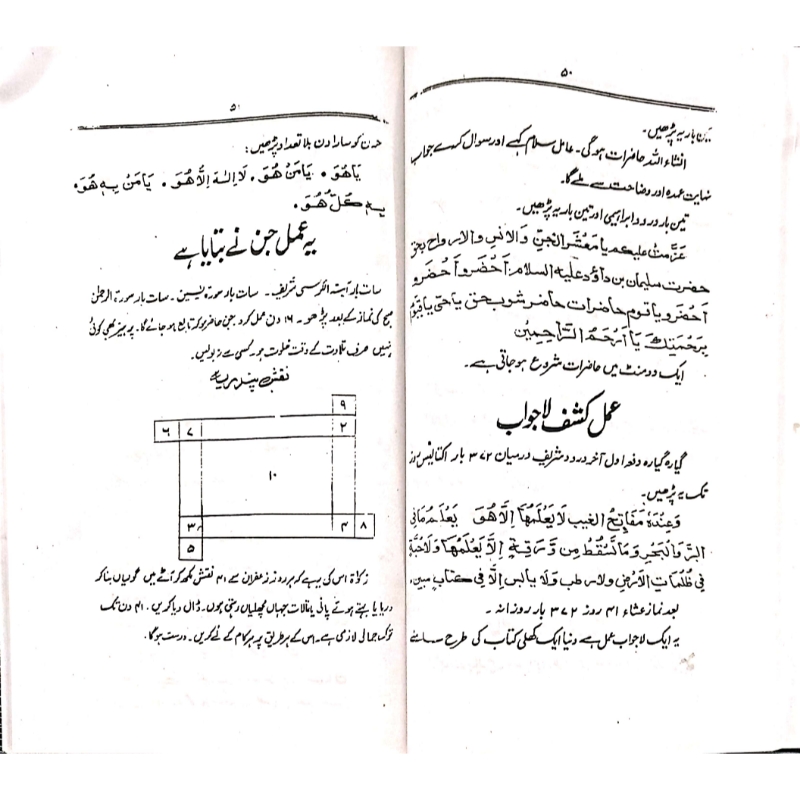 ۵۰
تین بار یہ پڑھیں۔
انشاء اللہ حاضرات ہوگی۔ عامل سلام کہے اور سوال کرے جواب
نہایت عمدہ اور وضاحت سے ملے گا۔
تین بار درود ابراہیمی اور تین بار یہ پڑھیں۔
عَزَّمْتُ علیکم یا مَعْشَرَ الجِنِّ وَالْاِنْسِ والارواح بحق
حضرت سلیمان بن داؤد علیہ السلام۔ اَحْضَرُو اَحْضَرُو
اَحْضَرُو یا قوم حاضرات حاضر شوب حق یا حی یا قیوم
بِرَحْمَتِكَ یَا اَرْحَمَ الرَّاحِمِیْنَ
ایک دو منٹ میں حاضرات شروع ہو جاتی ہے۔
عمل کشف لاجواب
گیارہ گیارہ دفعہ اول آخر درود شریف درمیان ۳۷۲ بار اکتالیس روز
تک یہ پڑھیں۔
وَعِنْدَهٗ مَفَاتِحُ الغیب لَا یَعْلَمُهَا اِلَّا هُوَ یَعْلَمُ مَا فِی
البَرِّ وَالْبَحْرِ وَمَا تَسْقُطُ مِن وَّرَقَةٍ اِلَّا یَعْلَمُهَا وَلَا حَبَّةٍ
فِی ظُلُمَاتِ الْاَرْضِ وَلَا رطب وَلَا یَابِس اِلَّا فِی کتاب مبین۔
بعد نماز عشاء ۴۱ روز ۳۷۲ بار روزانہ۔
یہ ایک لاجواب عمل ہے دنیا ایک کھلی کتاب کی طرح سامنے
۵۱
دن کو سارا دن بلا تعداد پڑھیں:
یَا هُوَ۔ یَا مَنْ هُوَ۔ لَا اِلٰهَ اِلَّا هُوَ۔ یَا مَنْ بِهٖ هُوَ۔
بِهٖ کُلُّ هُوَ۔
یہ عمل جن نے بتایا ہے
سات بار آیتہ الکرسی شریف۔ سات بار سورۃ یٰسین۔ سات بار سورۃ الرحمٰن
صبح کی نماز کے بعد پڑھو۔ ۱۶ دن عمل کرو۔ جن حاضر ہو کر تابع ہو جائے گا۔ پرہیز بھی کوئی
نہیں صرف تلاوت کے وقت خلوت ہو۔ کسی سے نہ بولیں۔
نقش پندرہ
۹
۶ ۷ ۲
۱۰
۳ ۴ ۸
۵
زکوٰۃ اس کی یہ ہے کہ ہر روز زعفران سے ۴۱ نقش لکھ کر آٹے میں گولیاں بنا کر
دریا یا بہتے ہوئے پانی یا تالاب جہاں مچھلیاں رہتی ہوں۔ ڈال دیا کریں۔ ۴۱ دن تک
ترک جمالی لازمی ہے۔ اس کے ہر طریق پر ہر کام کے لئے کریں۔ درست ہوگا۔